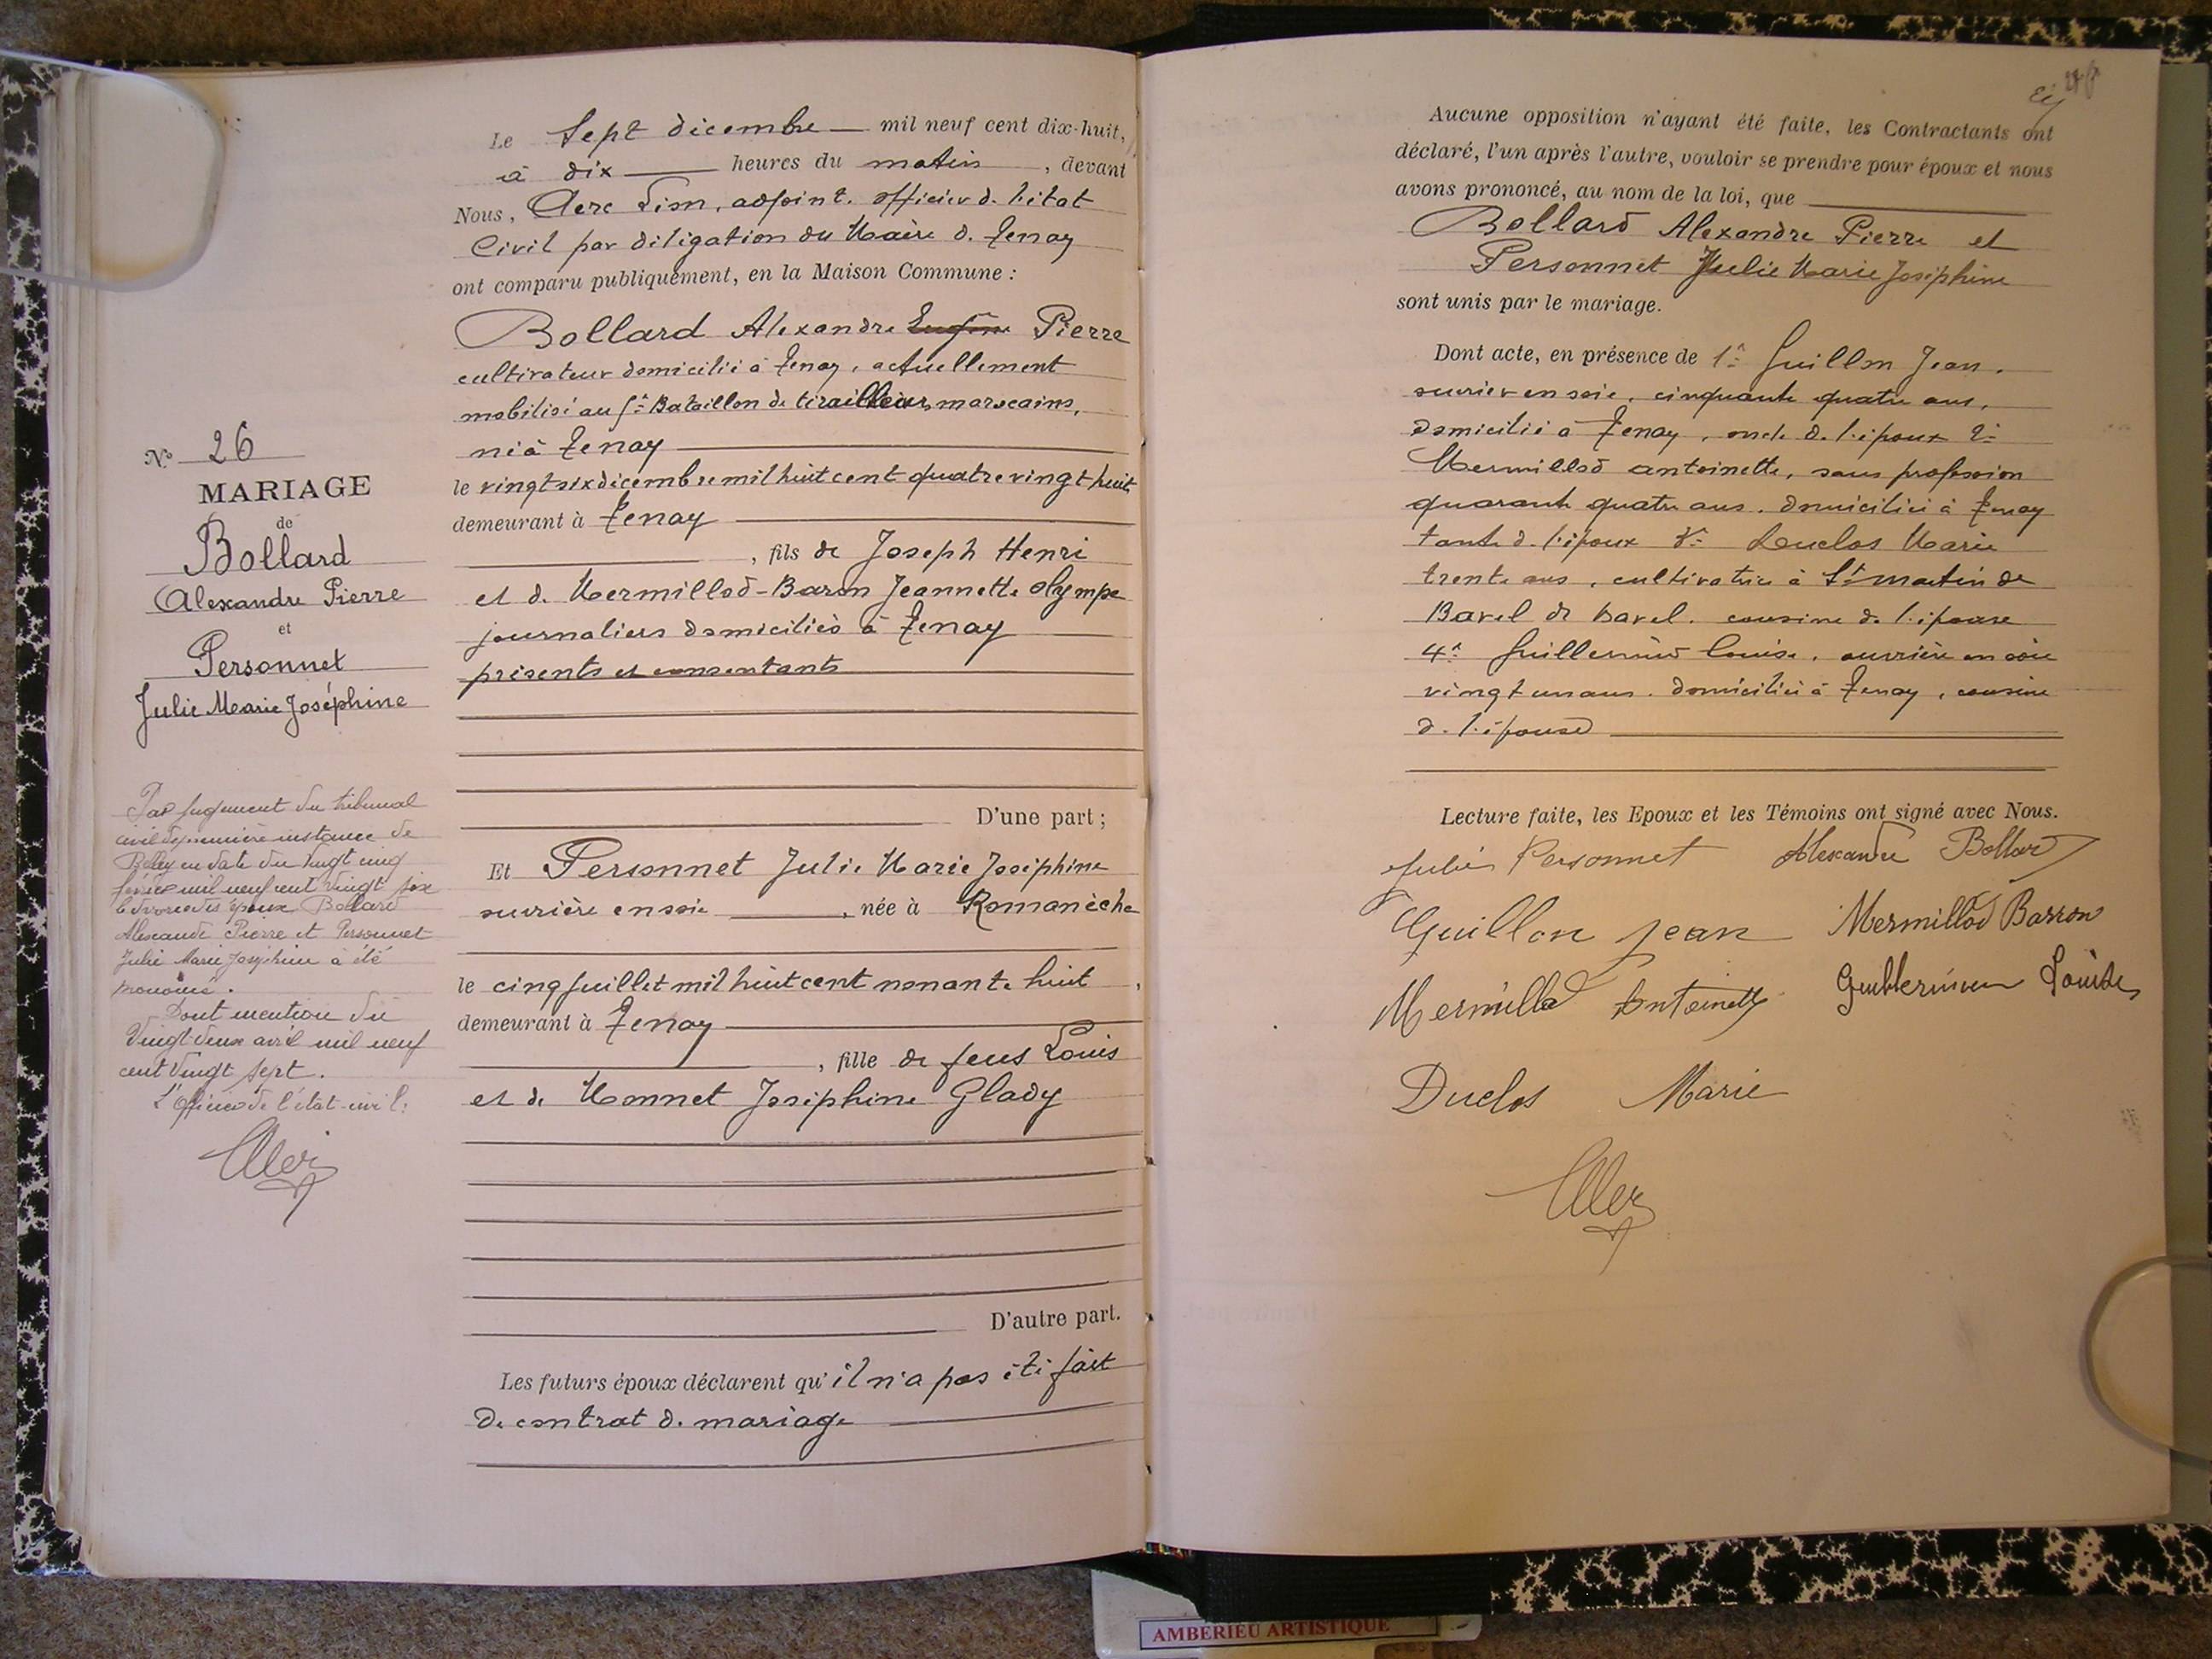 Le Sept décembre mil neuf cent dix-huit,
à dix heures du matin, devant
Nous, Clerc Léon, adjoint, officier de l'état
Civil par déligation du Maire de Tenay
ont comparu publiquement, en la Maison Commune :
Bollard Alexandre Eugène Pierre
cultivateur domicilié à Tenay, actuellement
mobilisé au Bataillon de tirailleurs marocains,
né à Tenay
le vingt six décembre mil huit cent quatre vingt huit
demeurant à Tenay
, fils de Joseph Henri
et de Mermillod-Baron Jeannette Olympe
journaliers domiciliés à Tenay
présents et consentants
D'une part ;
Et Personnet Julie Marie Joséphine
ouvrière en soie, née à Romanèche
le cinq juillet mil huit cent nonante huit,
demeurant à Tenay
, fille de feus Louis
et de Monnet Joséphine Glady
D'autre part.
Les futurs époux déclarent qu'il n'a pas été fait
de contrat de mariage
N° 26
MARIAGE
de
Bollard
Alexandre Pierre
et
Personnet
Julie Marie Joséphine
Par jugement du tribunal
civil de première instance de
Belley en date du vingt cinq
février mil neuf cent vingt six
le divorce des époux Bollard
Alexandre Pierre et Personnet
Julie Marie Joséphine a été
prononcé.
Dont mention du
Vingt deux avril mil neuf
cent vingt sept.
L'Officier de l'état-civil:
Aucune opposition n'ayant été faite, les Contractants ont
déclaré, l'un après l'autre, vouloir se prendre pour époux et nous
avons prononcé, au nom de la loi, que
Bollard Alexandre Pierre et
Personnet Julie Marie Joséphine
sont unis par le mariage.
Dont acte, en présence de 1° Guillon Jean,
ouvrier en soie, cinquante quatre ans,
domicilié à Tenay, oncle de l'époux 2°
Mermillod antoinette, sans profession
quarante quatre ans, domiciliée à Tenay
tante de l'époux 3° Duclos Marie
trente ans, cultivatrice à St martin de
Bavel de bavel, cousine de l'épouse
4° Louise, ouvrière en soie
vingt un ans, domiciliée à Tenay, cousine
de l'épouse
Lecture faite, les Epoux et les Témoins ont signé avec Nous.
Julie Personnet Alexandre Bollard
Guillon Jean Mermillod Barron
Mermillod Antoinette Louise
Duclos Marie
AMBERIEU ARTISTIQUE